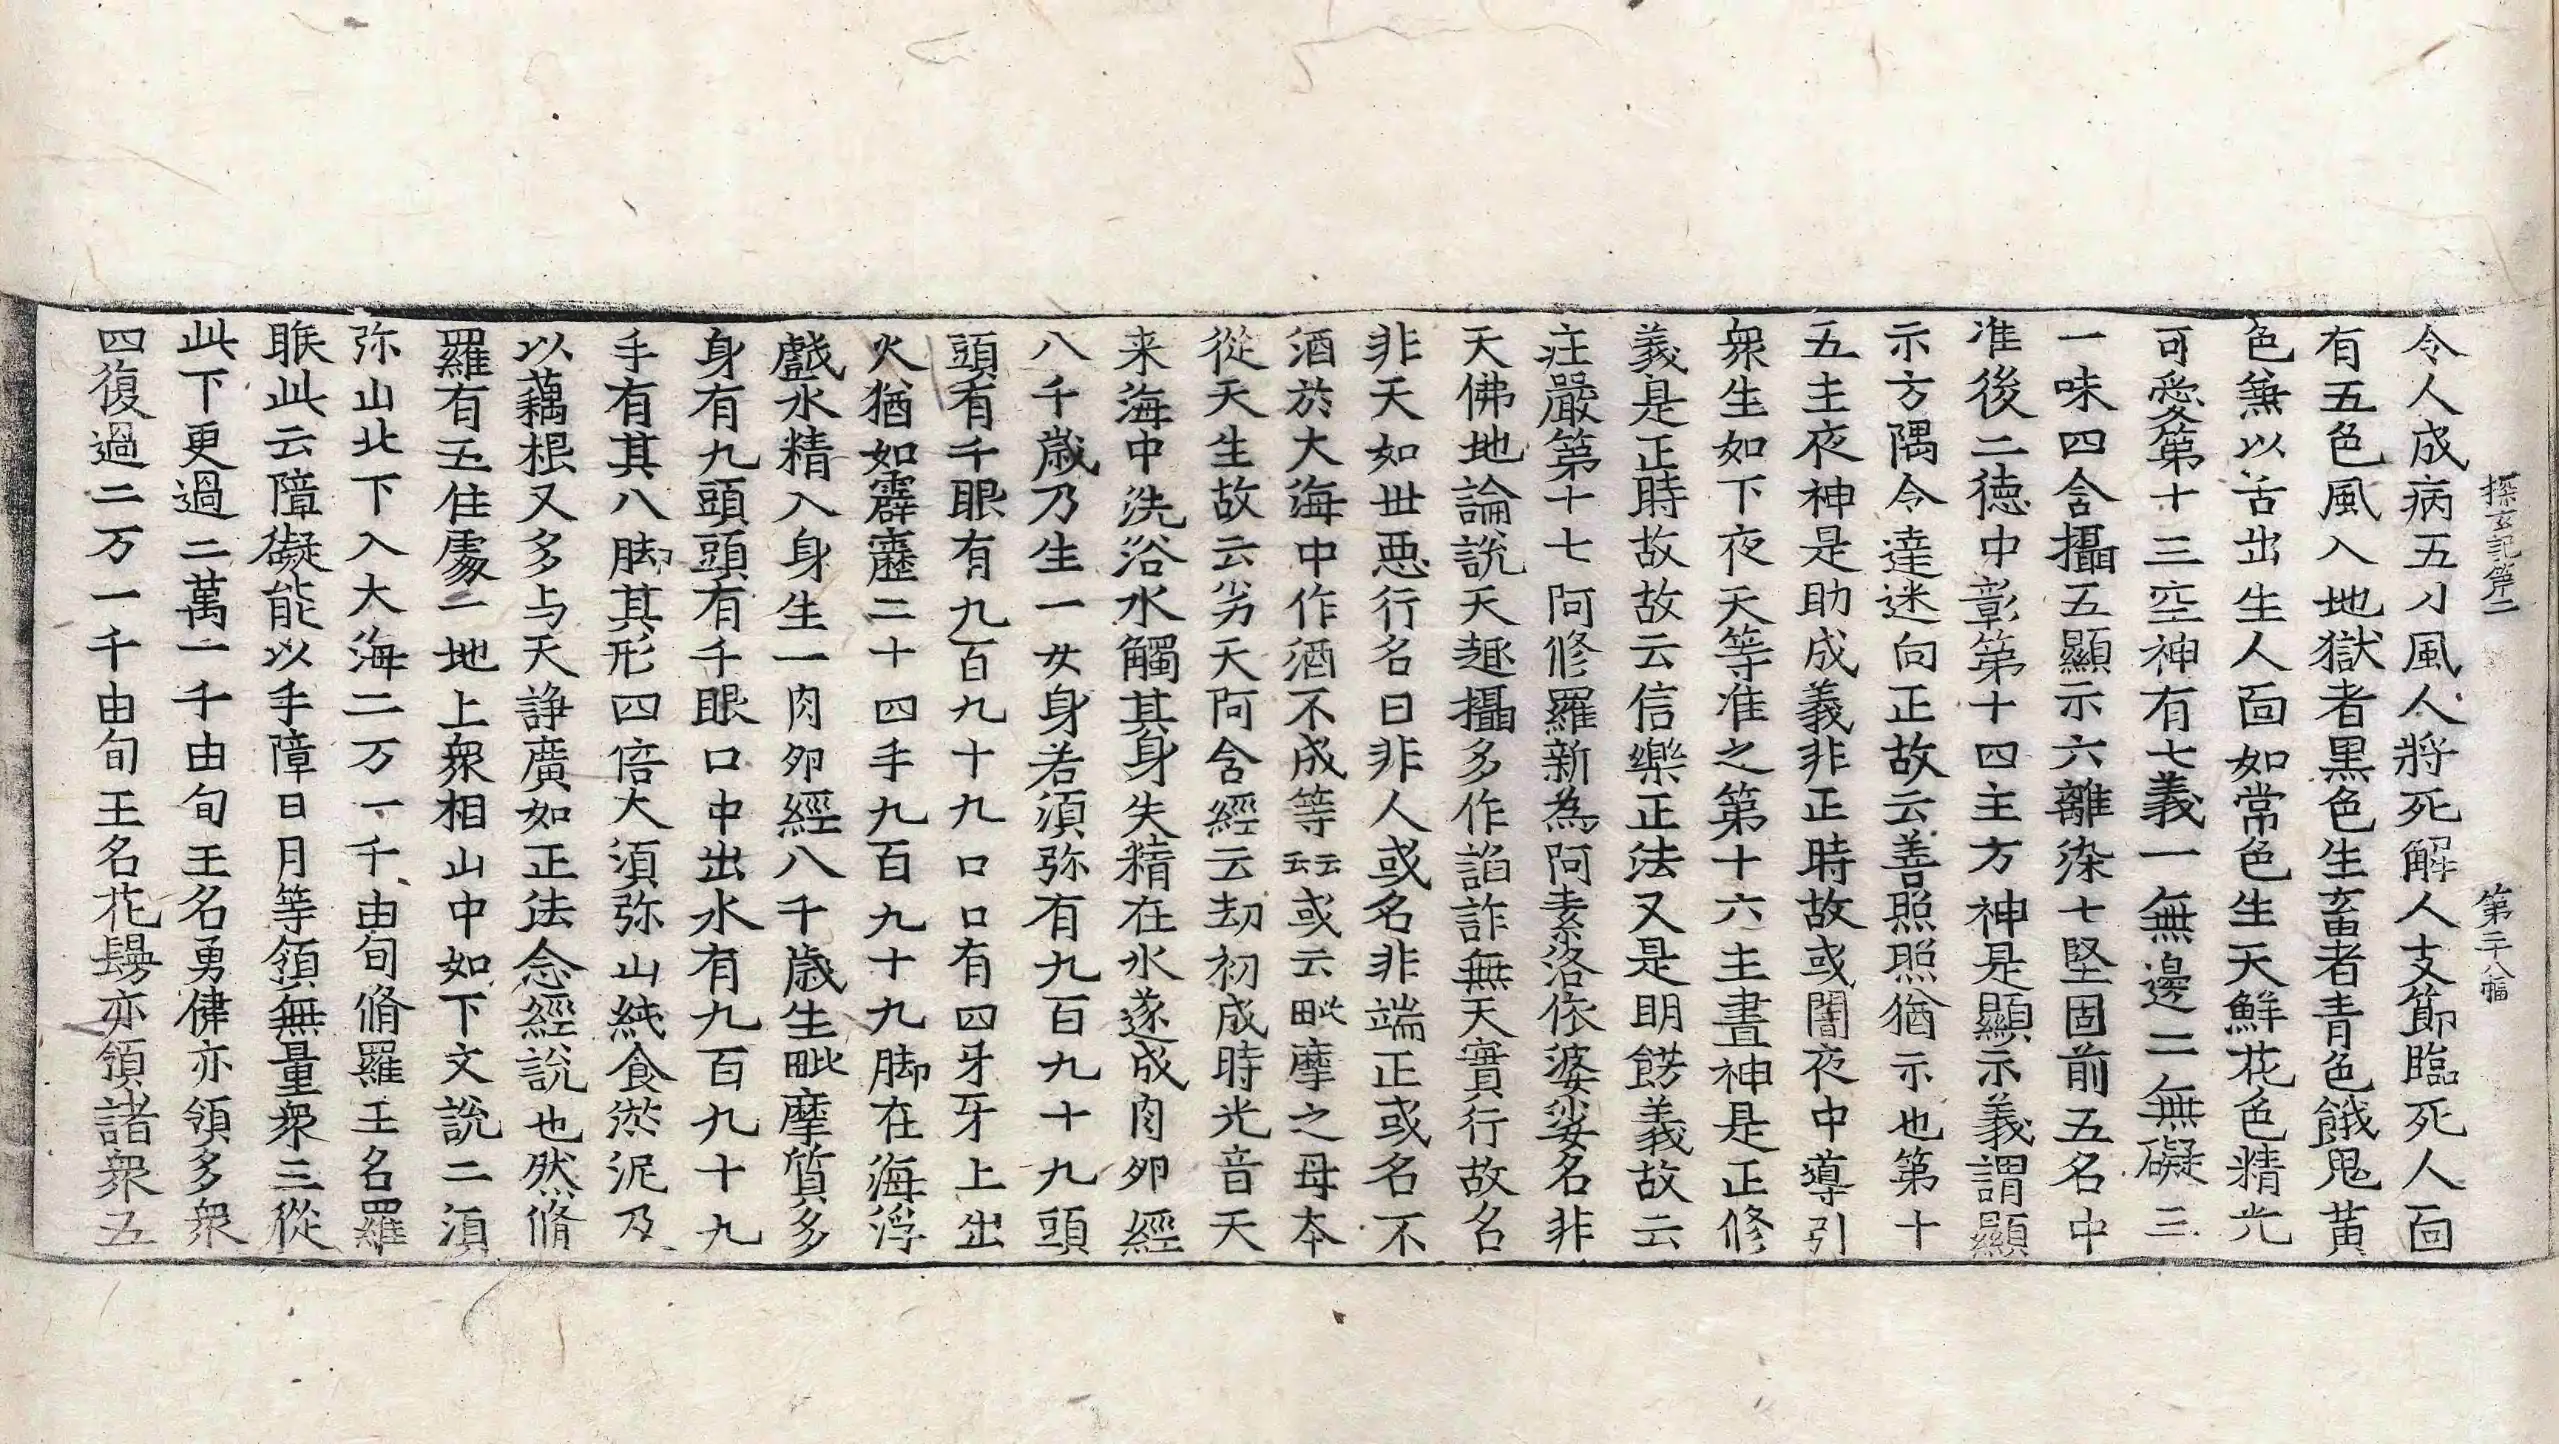 探玄記第二 第二十八幅
令人成病五刀風人將死解人支節臨死人面
有五色風入地獄者黒色生畜者青色餓鬼黄
色無以舌出生人面如常色生天鮮花色精光
可愛第十三空神有七義一無邊二無礙三
一味四含攝五顯示六離染七堅固前五名中
准後二德中彰第十四主方神是顯示義謂顯
示方隅令達迷向正故云善照照猶示也第十
五主夜神是助成義非正時故或闇夜中導引
衆生如下夜天等准之第十六主晝神是正修
義是正時故故云信樂正法又是明餝義故云
庄嚴第十七阿修羅新為阿素洛依婆娑名非
天佛地論說天趣攝多作諂詐無天實行故名
非天如世惡行名曰非人或名非端正或名不
酒於大海中作酒不成等云云或云毗摩之母本
從天生故云劣天阿含經云劫初成時光音天
来海中洗浴水觸其身失精在水遂成肉卵經
八千歲乃生一女身若須弥有九百九十九頭
頭有千眼有九百九十九口口有四牙牙上出
火猶如霹靂二十四手九百九十九脚在海浮
戲水精入身生一肉卵經八千歲生毗摩質多
身有九頭頭有千眼口中出水有九百九十九
手有其八脚其形四倍大須弥山純食淤泥及
以藕根又多与天諍廣如正法念經說也然脩
羅有五住處一地上衆相山中如下文說二須
弥山北下入大海二万一千由旬脩羅王名羅
睺此云障礙能以手障日月等領無量衆三從
此下更過二萬一千由旬王名勇健亦領多衆
四復過二万一千由旬王名花鬘亦領諸衆五